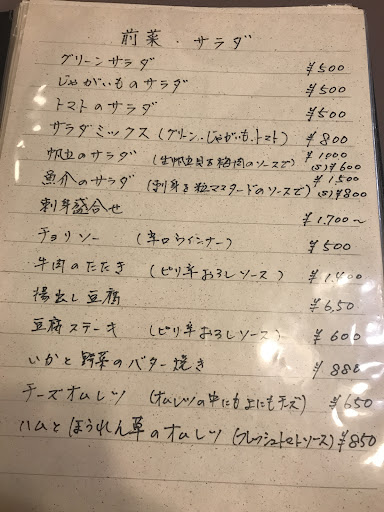 前菜・サラダ
グリーンサラダ ¥500
じゃがいものサラダ ¥500
トマトのサラダ ¥500
サラダミックス (グリーン.じゃがいも.トマト) ¥800
帆立のサラダ (生帆立貝を梅肉のソースで) ¥1000 (S)¥600
魚介のサラダ (刺身を粒マスタードのソースで) ¥1,500 (S)¥800
刺身盛合せ ¥1.700〜
チョリソー (辛口ウインナー) ¥500
牛肉のたたき (ピリ辛おろしソース) ¥1,400
揚出し豆腐 ¥6,50
豆腐ステーキ (ピリ辛おろしソース) ¥600
いかと野菜のバター焼き ¥880
チーズオムレツ (オムレツの中にも上にもチーズ) ¥650
ハムとほうれん草のオムレツ (フレッシュトマトソース) ¥850